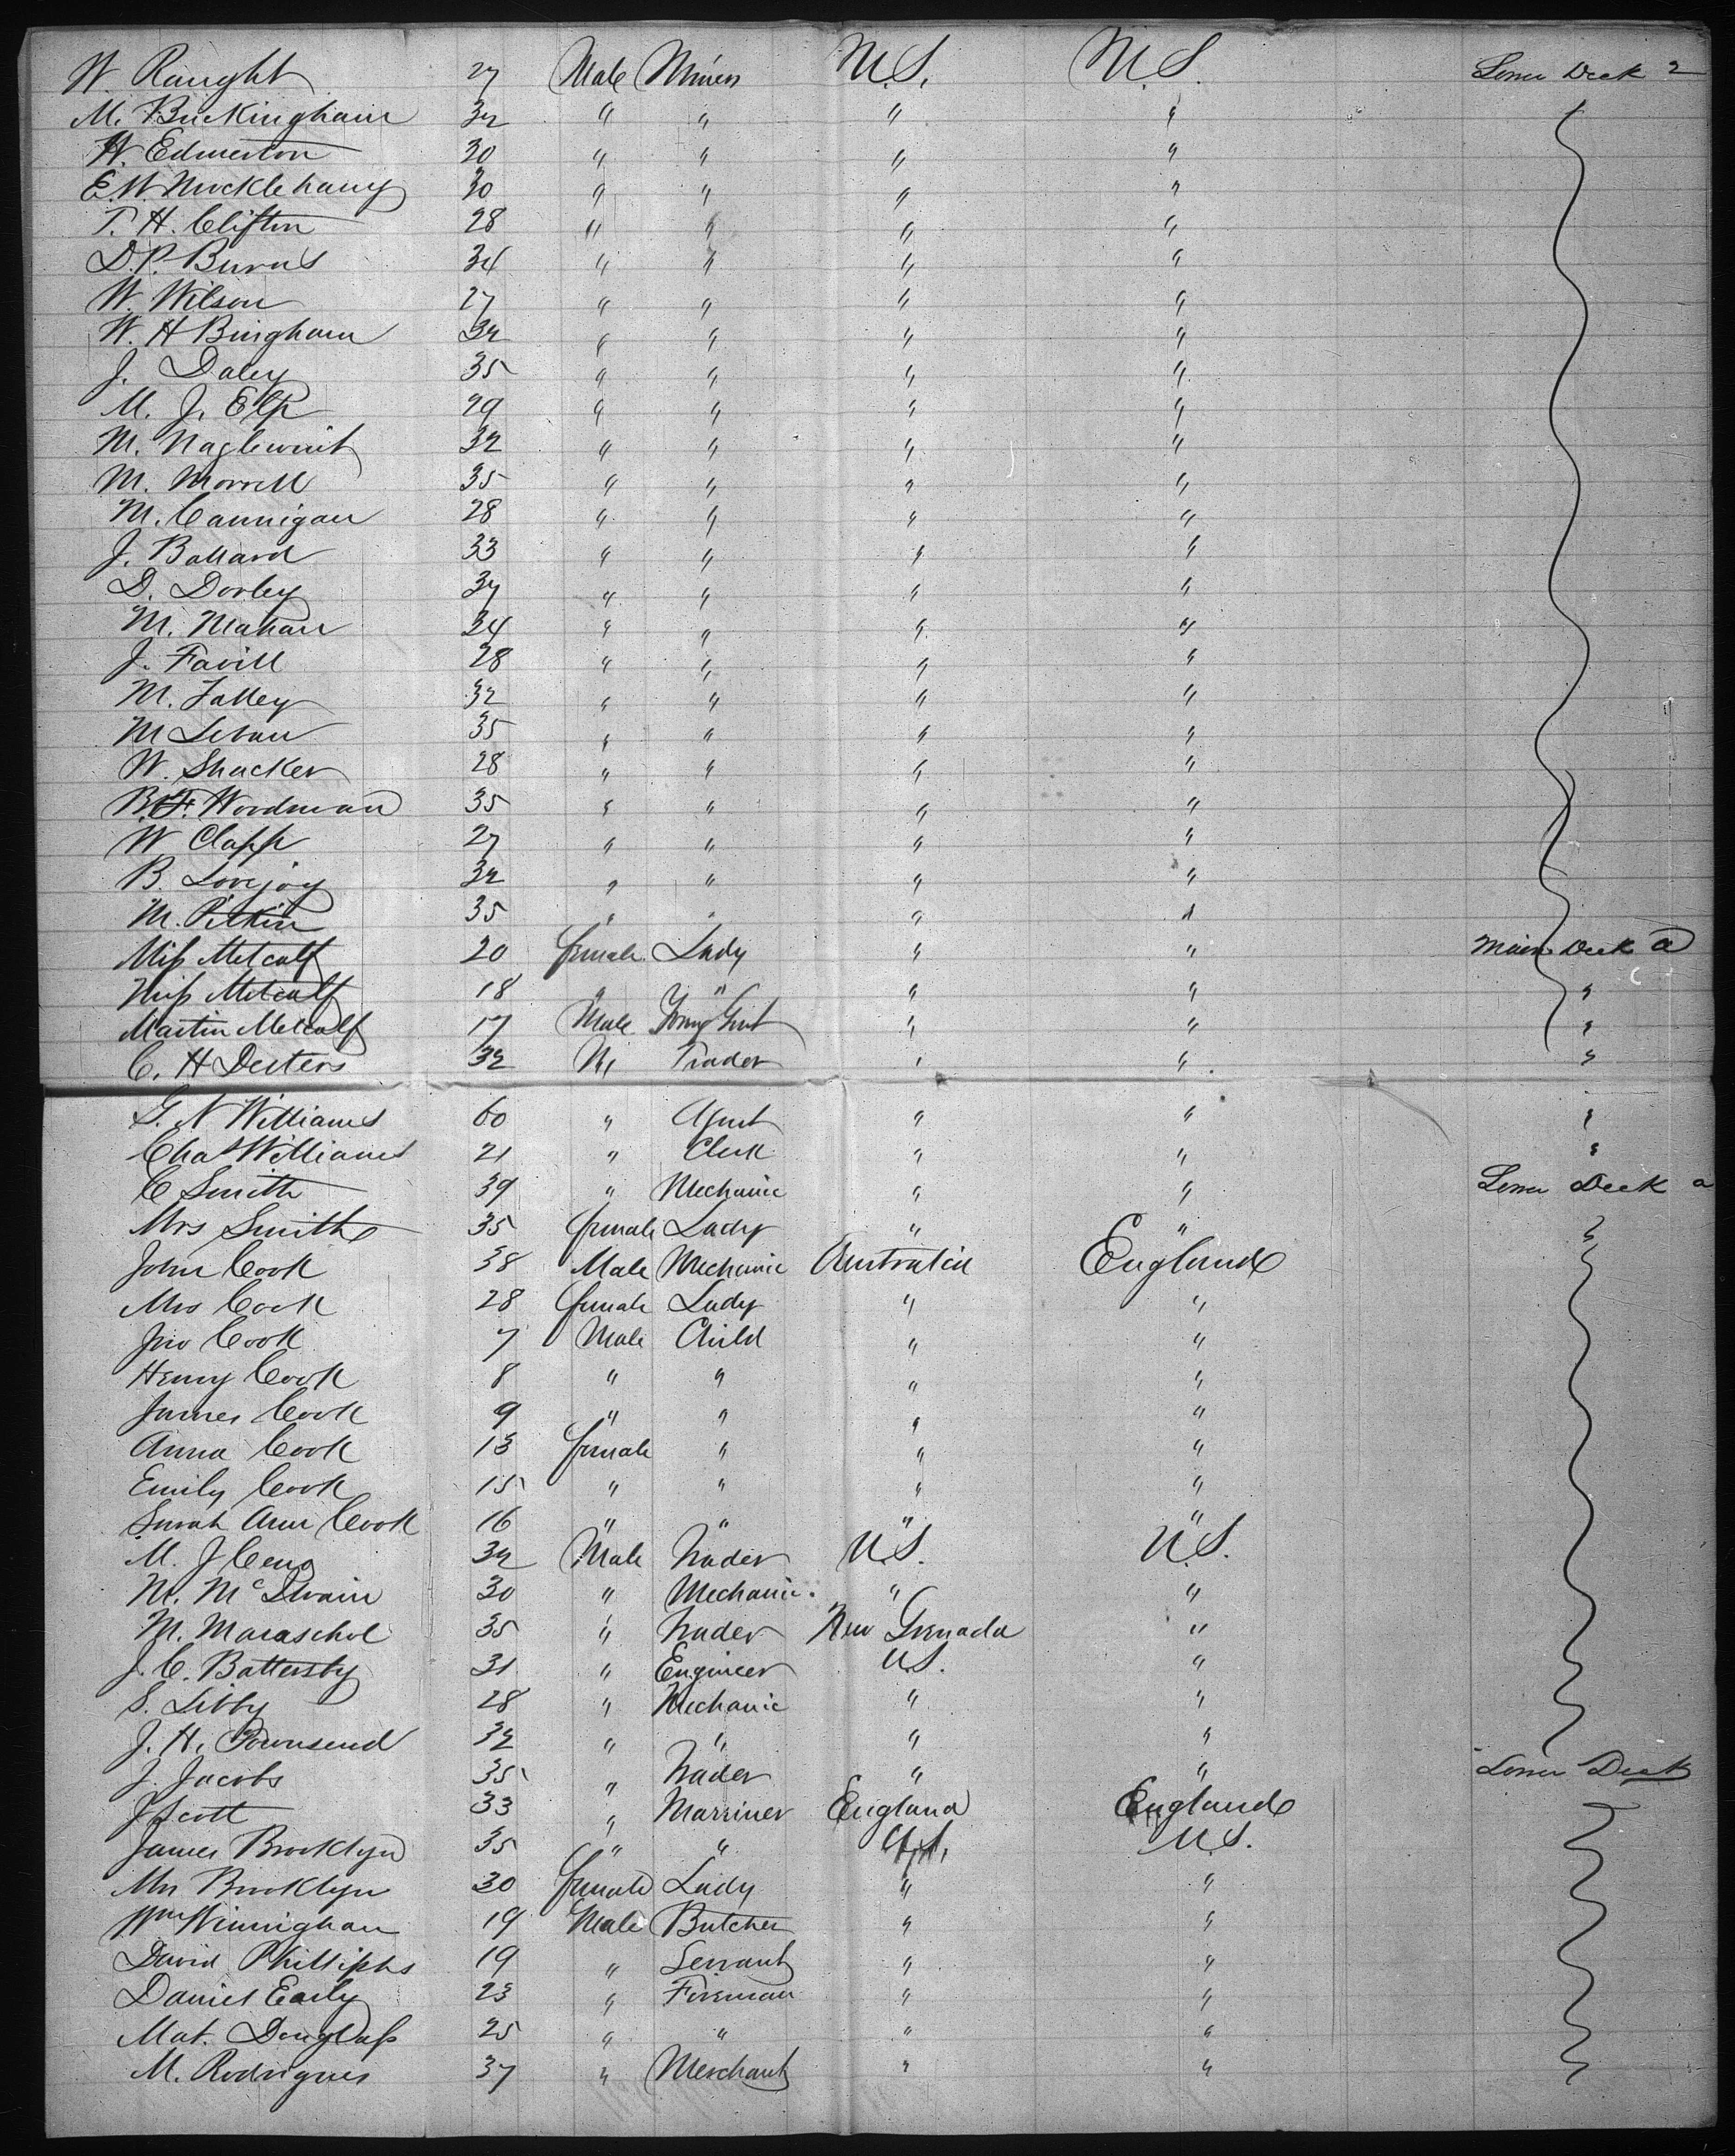 W. Raught 27 Male Miners U.S. U.S. Lower Deck 2
M. Buckingham 32 " " " "
H. Edmerton 30 " " " "
E.W. Mucklehany 30 " " " "
T. H. Clifton 28 " " " "
D.P. Burns 34 " " " "
W. Wilson 27 " " " "
W. H Bingham 32 " " " "
J. Daley 35 " " " "
M. J. Elp 29 " " " "
M. Naglewint 32 " " " "
M. Morrell 35 " " " "
M. Cannigan 28 " " " "
J. Ballard 33 " " " "
D. Dorley 37 " " " "
M. Mahan 24 " " " "
J. Favill 28 " " " "
M. Falley 32 " " " "
M Leban 35 " " " "
W. Shacker 28 " " " "
B.F. Woodman 35 " " " "
W Clapp 27 " " " "
B. Lovejoy 32 " " " "
M. Pitkin 35 " " " "
Miss Metcalf 20 female Lady " " Main Deck a
Miss Metcalf 18 " " " " "
Martin Metcalf 17 Male Young Gent " " "
C. H Deeters 32 M, Trader " " "
G. N Williams 60 " Agent " " "
Chas Williams 21 " Clerk " " "
C Smith 39 " Mechanic " " Lower Deck a
Mrs Smith 35 female Lady " " "
John Cook 38 Male Mechanic Australia England
Mrs Cook 28 female Lady " "
Jno Cook 7 Male Child " "
Henry Cook 8 " " " "
James Cook 9 " " " "
Anna Cook 13 female " " "
Emily Cook 15 " " " "
Sarah Ann Cook 16 " " " "
M. J Ceno 32 Male Trader U.S. U.S.
M. McIlvain 30 " Mechanic " "
M. Maraschol 35 " Trader New Grenada "
J. C. Battersby 31 " Engineer U.S. "
S. Libby 28 " Mechanic " "
J. H. Townsend 32 " " " "
J. Jacobs 35 " Trader " " Lower Deck
J Scott 33 " Marriner England England
James Brooklyn 35 " " U.S. U.S.
Mrs Brooklyn 30 female Lady " "
Wm Winnighan 19 Male Butcher " "
David Phillipps 19 " Servant " "
Daniel Early 23 " Fireman " "
Mat. Douglass 25 " " " "
M. Rodrigues 37 " Merchant " "